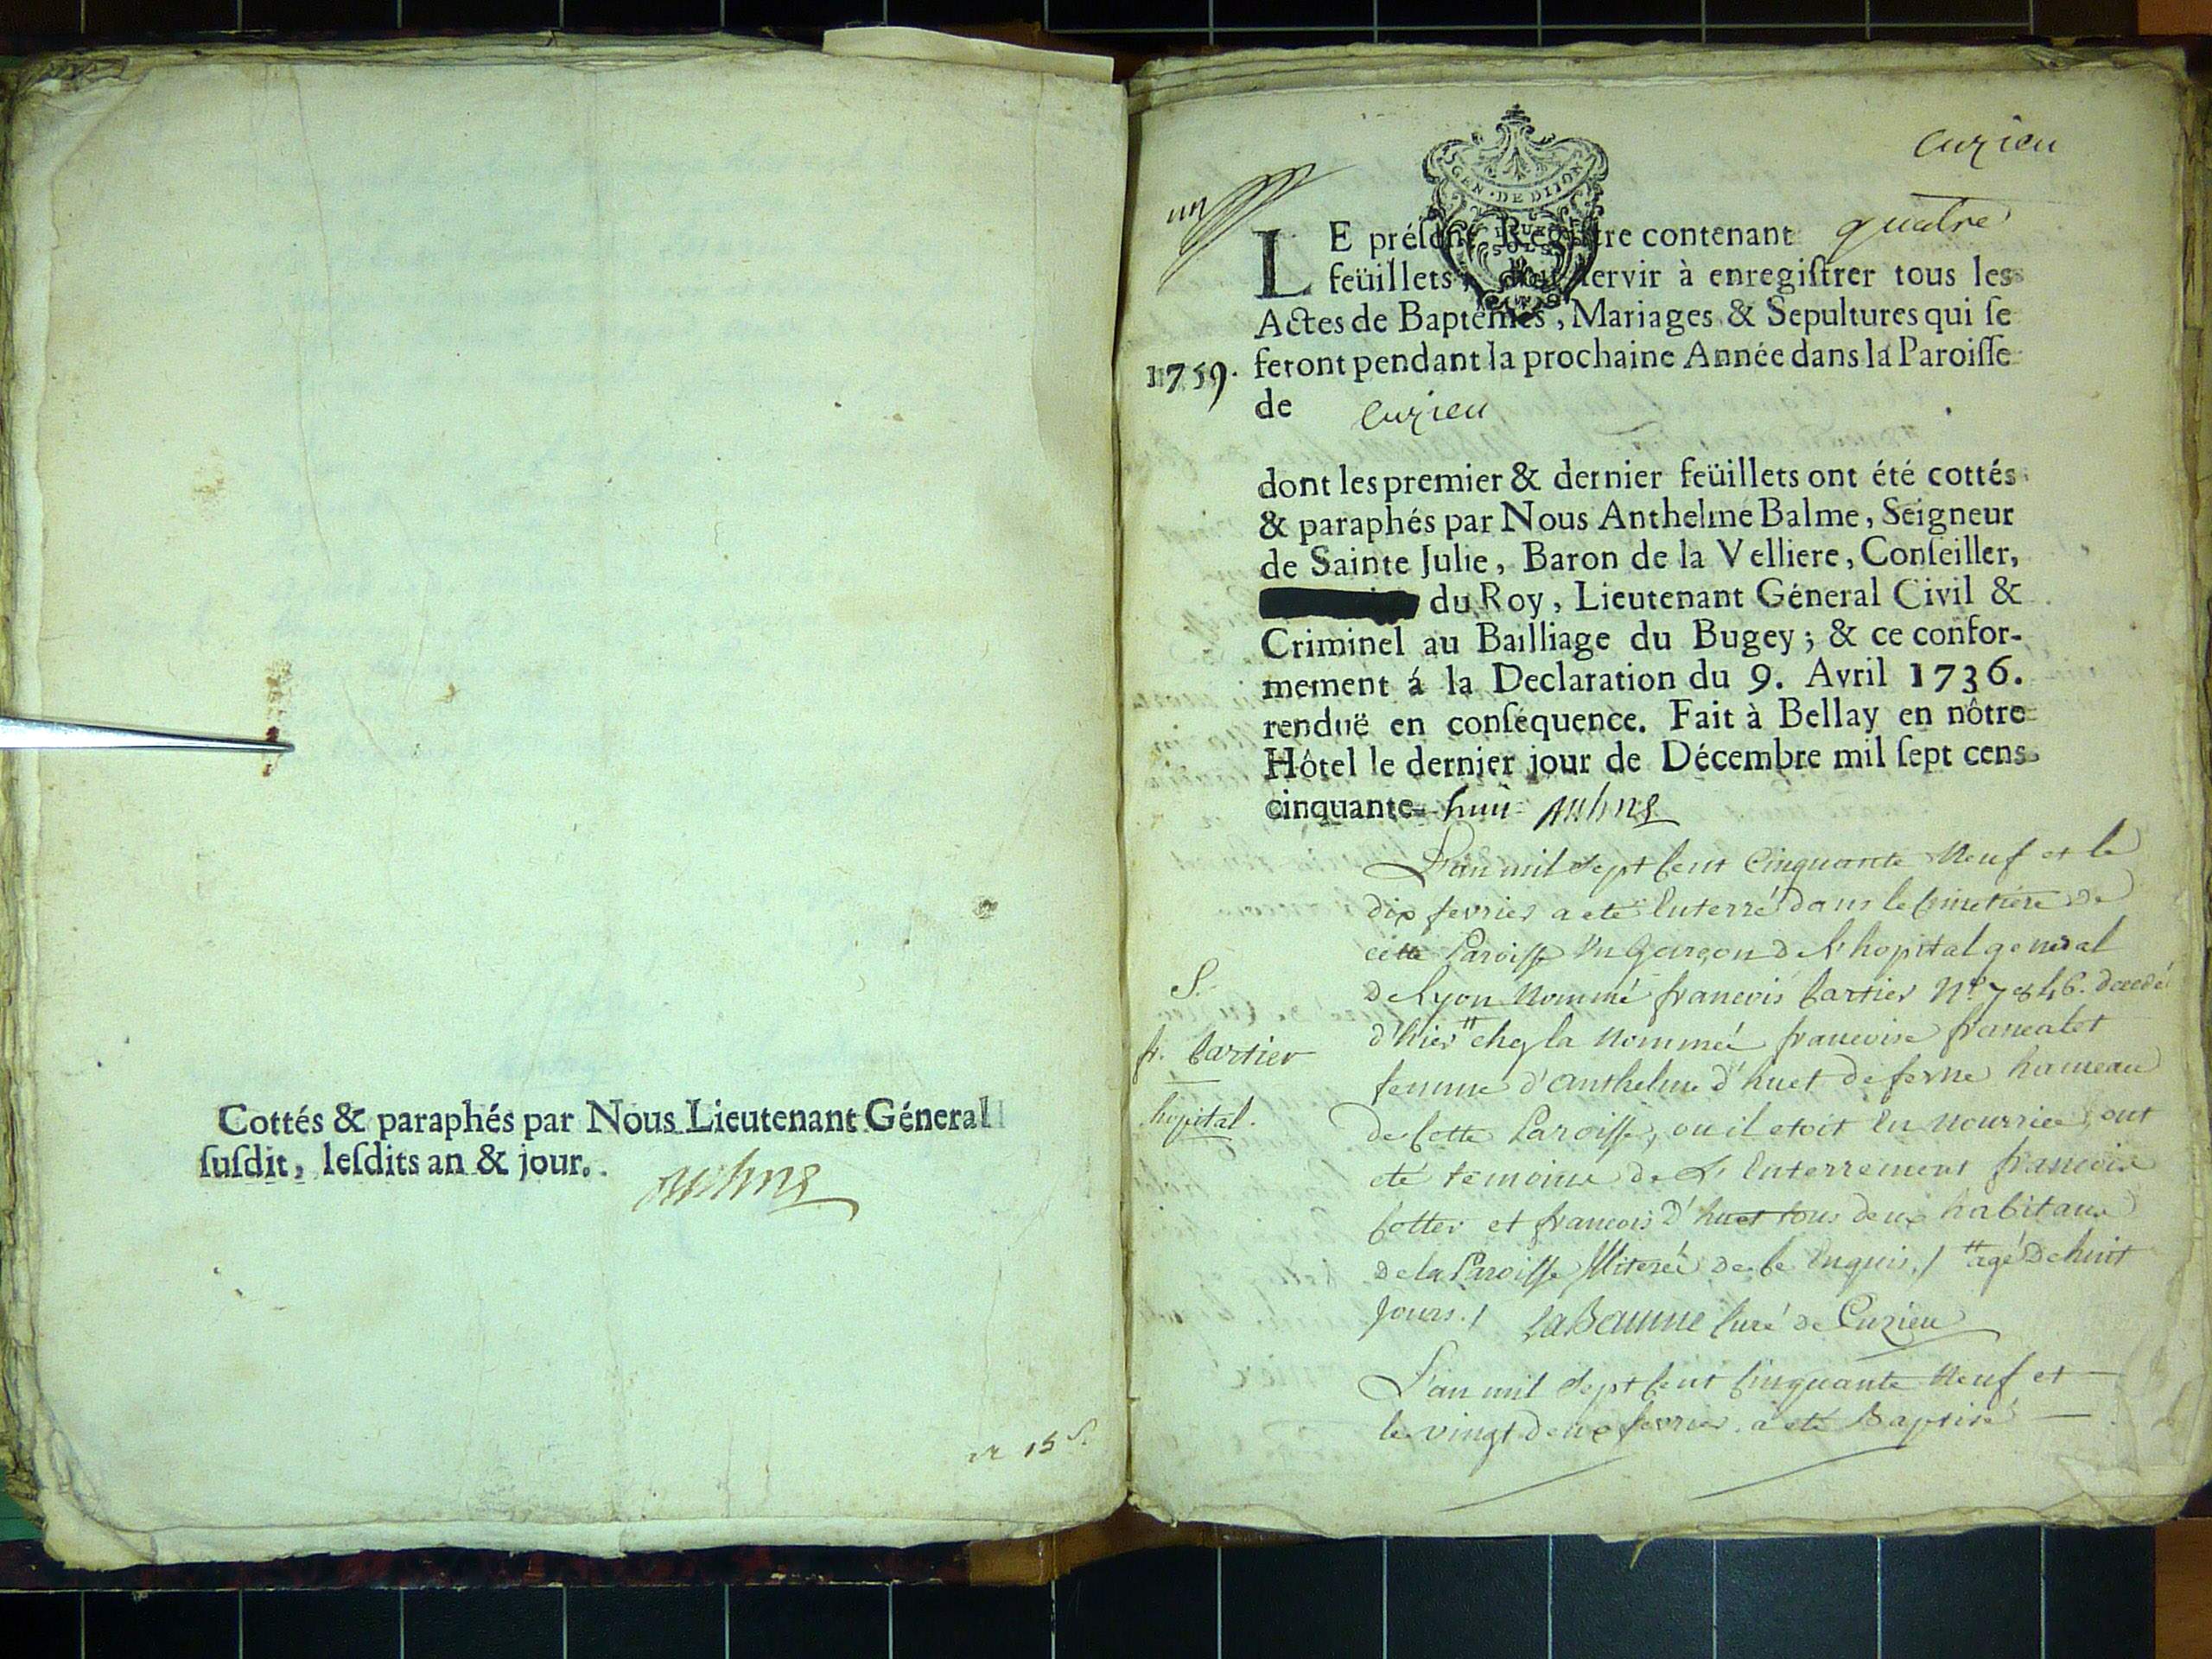 Cottés & paraphés par Nous Lieutenant Géneral
ſuſdit, leſdits an & jour.
15 s.
Cuzieu
un
GEN · DE DIJON
LE préſent Regiſtre contenant quatre
feüillets, doit ſervir à enregiſtrer tous les
Actes de Baptêmes, Mariages & Sepultures qui ſe
1759. feront pendant la prochaine Année dans la Paroiſſe
de Cuzieu
dont les premier & dernier feüillets ont été cottés
& paraphés par Nous Anthelme Balme, Seigneur
de Sainte Julie, Baron de la Velliere, Conſeiller,
du Roy, Lieutenant Géneral Civil &
Criminel au Bailliage du Bugey; & ce confor-
mement á la Declaration du 9. Avril 1736.
renduë en conſéquence. Fait à Bellay en nôtre
Hôtel le dernier jour de Décembre mil ſept cens
cinquante- huit
L'an mil sept Cent Cinquante Neuf et le
dix fevrier a eté Enterré dans le Cimetiere de
cette Paroisse Un Garçon de l'hopital general
S.
de Lyon Nommé francois Cartier N.º 7846. decedé
fr. Cartier
d'hier " chez la Nommée francoise francalet
femme d'anthelme d'huet de ferne hameau
hopital.
de Cette Paroisse, ou il etoit En Nourrice, ont
eté temoins de L'Enterrement francois
Cotter et francois d'huet tous deux habitans
de la Paroisse Illiterés de Ce Enquis. / " agé De huit
Jours. / LaBaume Curé de Cuzieu
L'an mil Sept Cent Cinquante Neuf et
le vingt deux fevrier a eté Baptisé